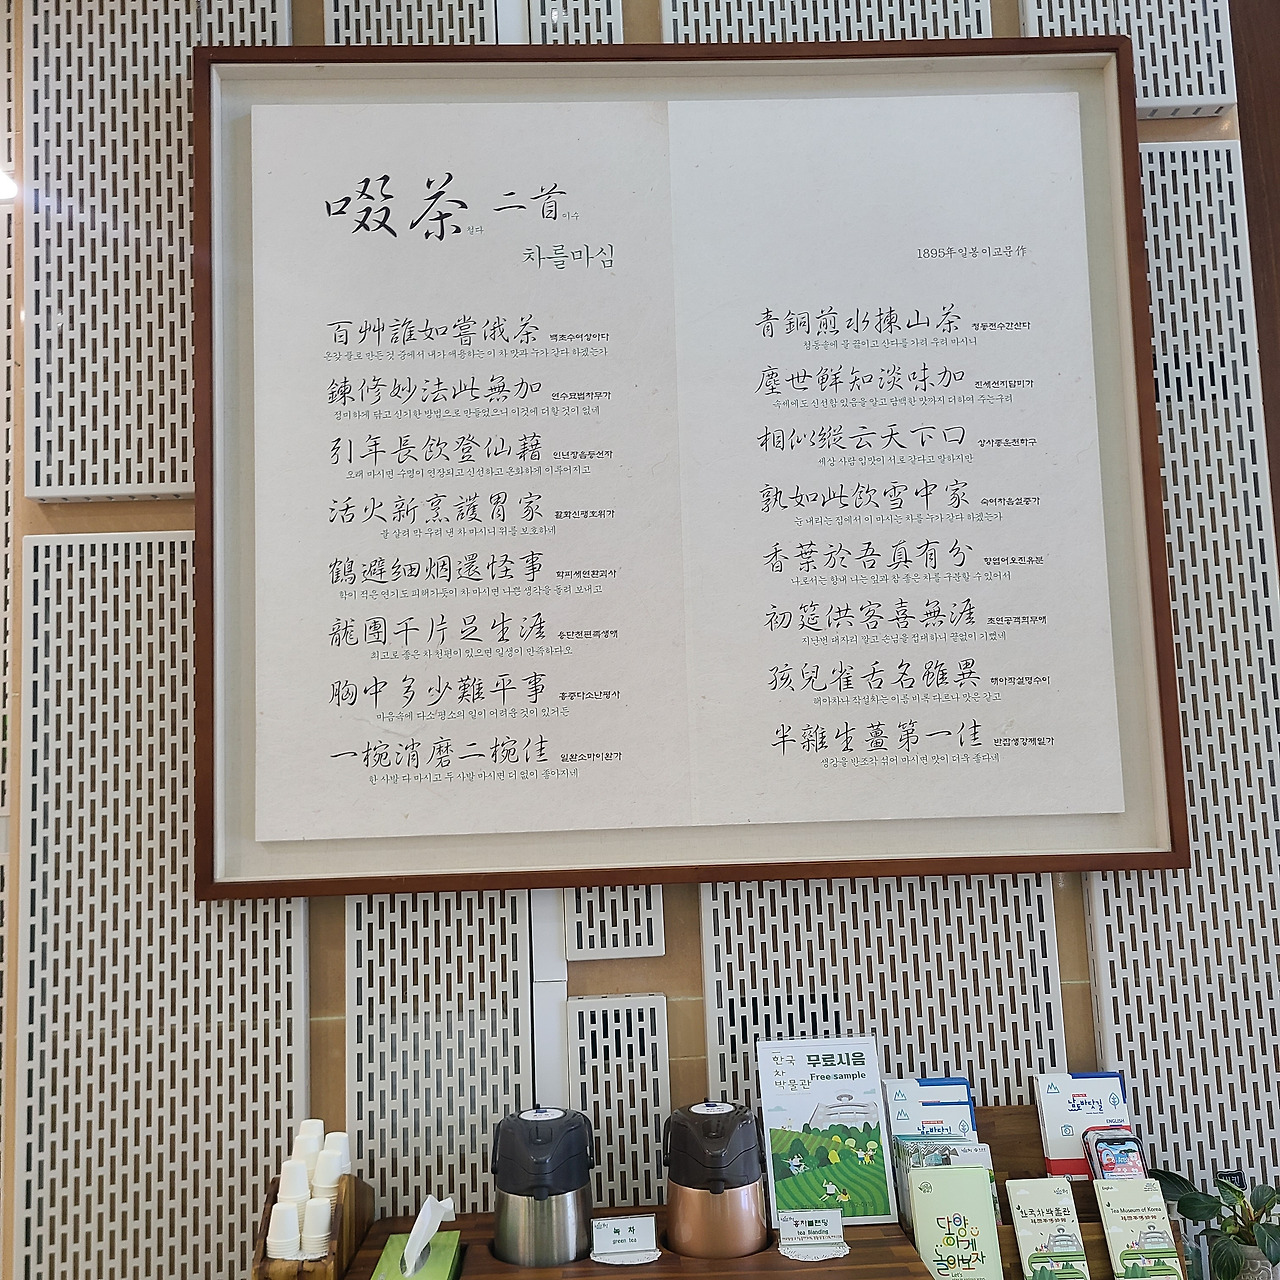 啜茶 철다 二首 이수
차를마심
百艸誰如嘗俄茶 백초수여상아다
온갖 풀로 만든 것 중에서 내가 애용하는 이 차 맛과 누가 같다 하겠는가
鍊修妙法此無加 연수묘법차무가
정미하게 닦고 신기한 방법으로 만들었으니 이것에 더할 것이 없네
引年長飮登仙藉 인년장음등선자
오래 마시면 수명이 연장되고 신선하고 온화하게 이루어지고
活火新烹護胃家 활화신팽호위가
불 살려 막 우려 낸 차 마시니 위를 보호하네
鶴避細烟還怪事 학피세연환괴사
학이 적은 연기도 피해가듯이 차 마시면 나쁜 생각을 돌려 보내고
龍團千片足生涯 용단천편족생애
최고로 좋은 차 천편이 있으면 일생이 만족하다오
胸中多少難平事 흉중다소난평사
마음속에 다소 평소의 일이 어려운 것이 있거든
一椀消磨二椀佳 일완소마이완가
한 사발 다 마시고 두 사발 마시면 더 없이 좋아지네
1895年 일봉 이교문 作
靑銅煎水揀山茶 청동전수간산다
청동솥에 물 끓이고 산다를 가려 우려 마시니
塵世鮮知淡味加 진세선지담미가
속세에도 신선함 있음을 알고 담백한 맛까지 더하여 주는구려
相似縱云天下口 상사종운천하구
세상 사람 입맛이 서로 같다고 말하지만
孰如此飮雪中家 숙여차음설중가
눈 내리는 집에서 이 마시는 차를 누가 같다 하겠는가
香葉於吾真有分 향엽어오진유분
나로서는 향내 나는 잎과 참 좋은 차를 구분할 수 있어서
初筵供客喜無涯 초연공객희무애
지난번 대자리 깔고 손님을 접대하니 끝없이 기뻤네
孩兒雀舌名雖異 해아작설명수이
해아차나 작설차는 이름 비록 다르나 맛은 같고
半雜生薑第一佳 반잡생강제일가
생강을 반조각 섞어 마시면 맛이 더욱 좋다네
한국
차
박물관
무료시음
Free sample
녹 차
green tea
홍차블랜딩
tea blanding
남도바닷길
남도바닷길
ENGLISH
다향
하게
놀아보자
Let's
한국차박물관
Tea Museum of Korea